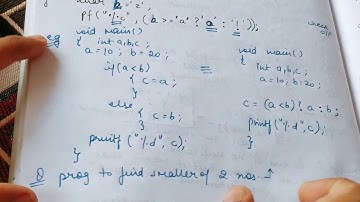 char k = 'z';
pf("%c", (k >= 'a' ? 'a' : 'j'));
check
o/p
eg void main()
{ int a,b,c;
a=10; b=20;
if(a<b)
{ c=a;
}
else
{ c=b;
}
printf ("%d", c);
}
void main()
{
int a,b,c;
a=10; b=20;
c = (a<b) ? a:b;
printf("%d",c);
}
Q prog to find smaller of 2 nos.